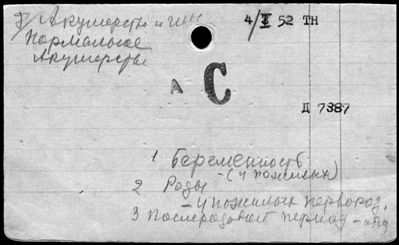 Акушерство и гин
4/X 52 ТН
Нормальное
Акушерство
А С
Д 7387
1 Беременность
- (у пожилых)
2 Роды
- у пожилых первород.
3 Послеродовый период -